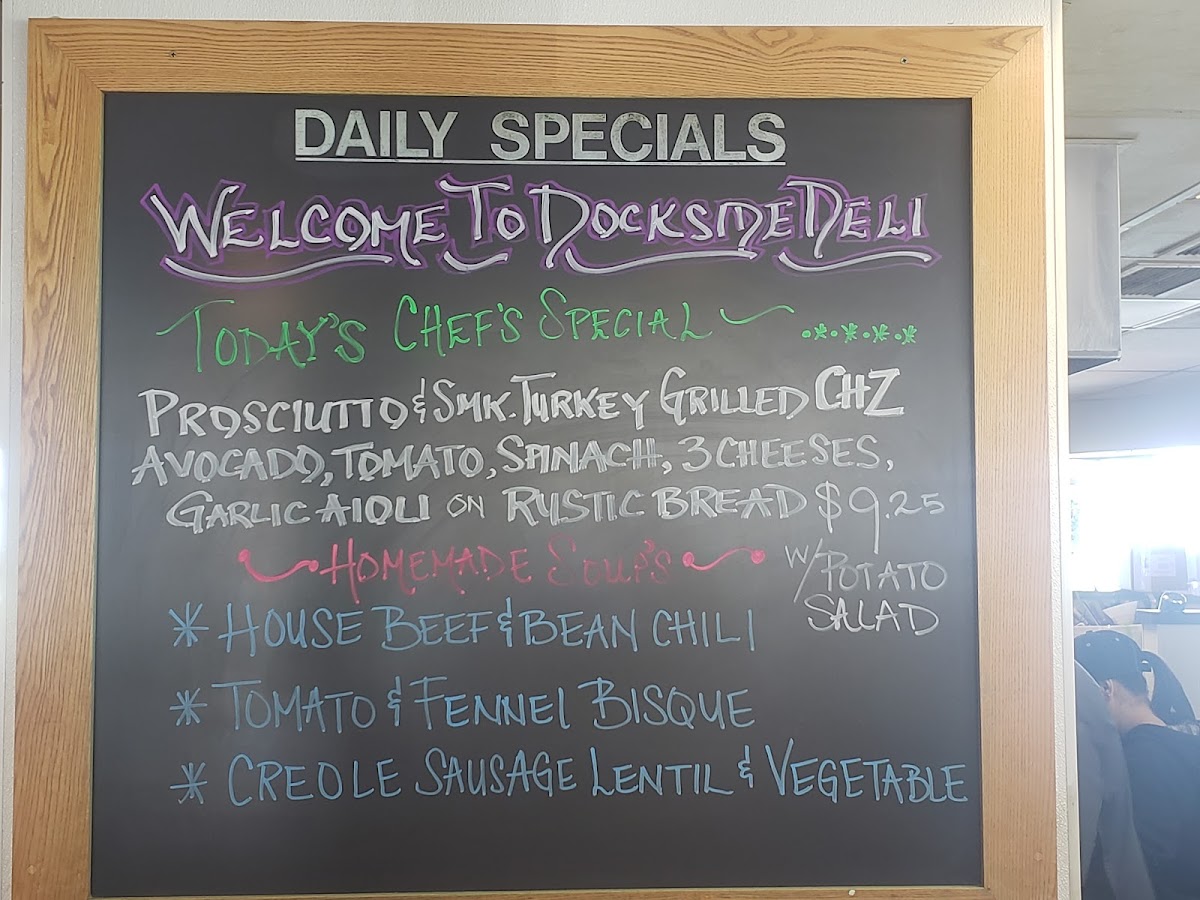 DAILY SPECIALS
WELCOME TO DOCKSIDE DELI
TODAY'S CHEF'S SPECIAL
PROSCIUTTO & SMK. TURKEY GRILLED CHZ
AVOCADO, TOMATO, SPINACH, 3 CHEESES,
GARLIC AIOLI ON RUSTIC BREAD $9.25
W/POTATO
SALAD
HOMEMADE SOUP'S
* HOUSE BEEF & BEAN CHILI
* TOMATO & FENNEL BISQUE
* CREOLE SAUSAGE LENTIL & VEGETABLE